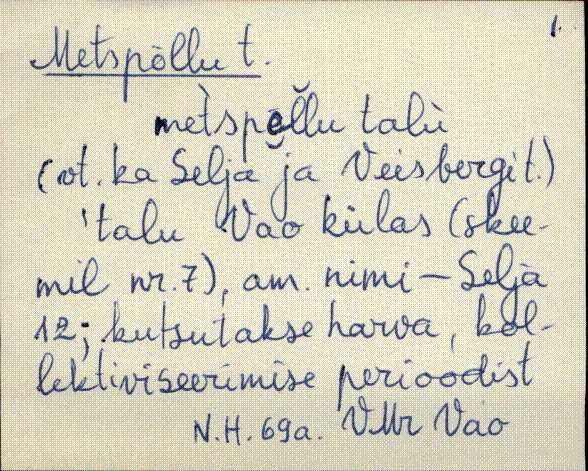 1.
Metspõllu t.
mètspe̬l̆lu talù
(vt. ka Selja ja Veisbergi t.)
'talu Vao külas (skee-
mil nr. 7), am. nimi – Selja
12; kutsutakse harva, kol-
lektiviseerimise perioodist
N.H. 69a. VMr Vao